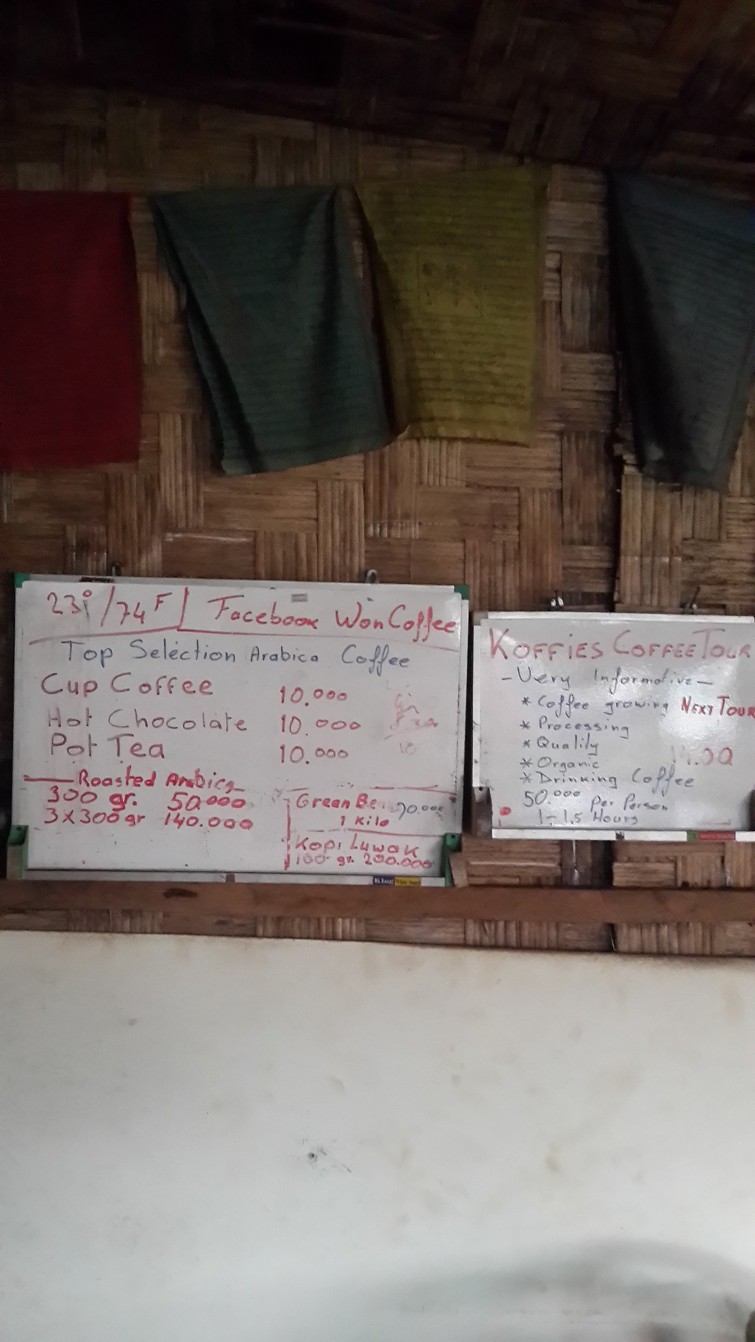 23°/74 F Facebook WonCoffee
Top Selection Arabica Coffee
Cup Coffee 10.000
Hot Chocolate 10.000
Pot Tea 10.000
Roasted Arabica
300 gr. 50.000
3x300 gr 140.000
Green
1 Kilo
Kopi Luwak
100 gr. 200.000
KOFFIES COFFEE TOUR
- Very Informative -
* Coffee growing
* Processing
* Quality
* Organic
* Drinking Coffee
50.000 Per Person
1-1.5 Hours
NEXT TOUR